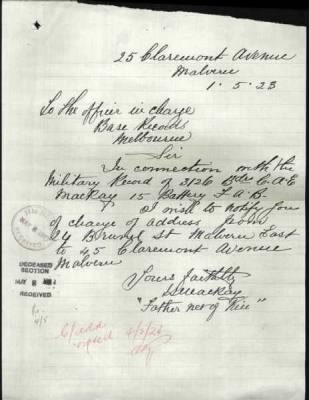 25 Claremont Avenue
Malvern
1. 5. 23
To the officer in charge
Base Records
Melbourne
Sir
In connection with the
Military Record of 3126 Bdr C. A. E
Mackay 15 Battery F. A. B.
I wish to notify you
of change of address from
24 Brunel St Malvern East
to 45 Claremont Avenue
Malvern
Yours faithfully
Mackay
"Father nex of Kin"
DECEASED
SECTION
MAY 8
RECEIVED
4/5